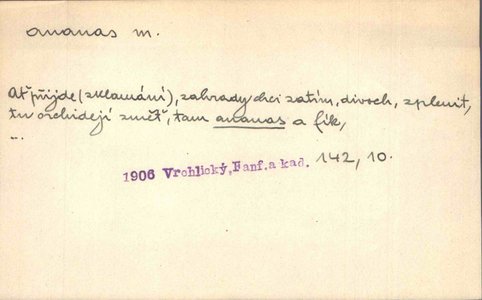 ananas m.
Ať přijde (zklamání), zahrady chci zatím, divoch, zplenit,
tu orchidejí změť, tam ananas a fík,
...
1906 Vrchlický, Fanf. a kad. 142, 10.